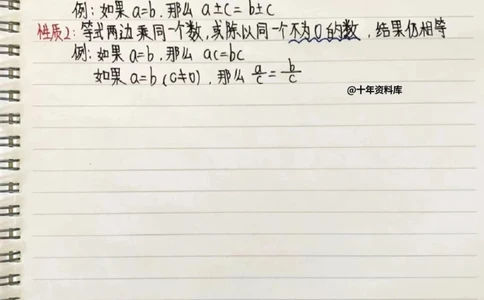 例:如果a=b,那么 a±c=b±c
性质2:等式两边乘同一个数,或除以同一个不为0的数,结果仍相等
例:如果a=b,那么 ac=bc
如果a=b(c≠0),那么 a/c=b/c
@十年资料库